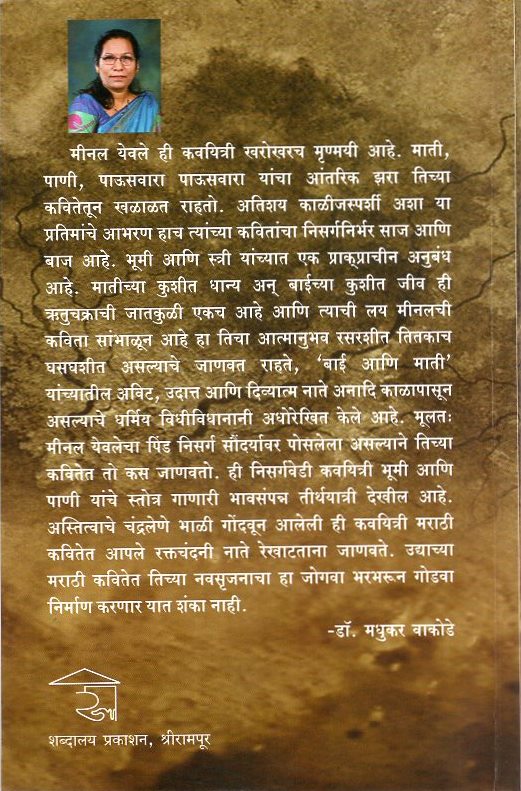 मीनल येवले ही कवयित्री खरोखरच मृण्मयी आहे. माती,
पाणी, पाऊसवारा पाऊसवारा यांचा आंतरिक झरा तिच्या
कवितेतून खळाळत राहतो. अतिशय काळीजस्पर्शी अशा या
प्रतिमांचे आभरण हाच त्यांच्या कवितांचा निसर्गनिर्भर साज आणि
बाज आहे. भूमी आणि स्त्री यांच्यात एक प्राक्‌प्राचीन अनुबंध
आहे. मातीच्या कुशीत धान्य अन् बाईच्या कुशीत जीव ही
ऋतुचक्राची जातकुळी एकच आहे आणि त्याची लय मीनलची
कविता सांभाळून आहे हा तिचा आत्मानुभव रसरशीत तितकाच
घसघशीत असल्याचे जाणवत राहते, ‘बाई आणि माती’
यांच्यातील अविट, उदात्त आणि दिव्यात्म नाते अनादि काळापासून
असल्याचे धर्मिय विधीविधानानी अधोरेखित केले आहे. मूलतः
मीनल येवलेचा पिंड निसर्ग सौंदर्यावर पोसलेला असल्याने तिच्या
कवितेत तो कस जाणवतो. ही निसर्गवेडी कवयित्री भूमी आणि
पाणी यांचे स्तोत्र गाणारी भावसंपन्न तीर्थयात्री देखील आहे.
अस्तित्वाचे चंद्रलेणे भाळी गोंदवून आलेली ही कवयित्री मराठी
कवितेत आपले रक्तचंदनी नाते रेखाटताना जाणवते. उद्याच्या
मराठी कवितेत तिच्या नवसृजनाचा हा जोगवा भरभरून गोडवा
निर्माण करणार यात शंका नाही.
-डॉ. मधुकर वाकोडे
शब्दालय प्रकाशन, श्रीरामपूर